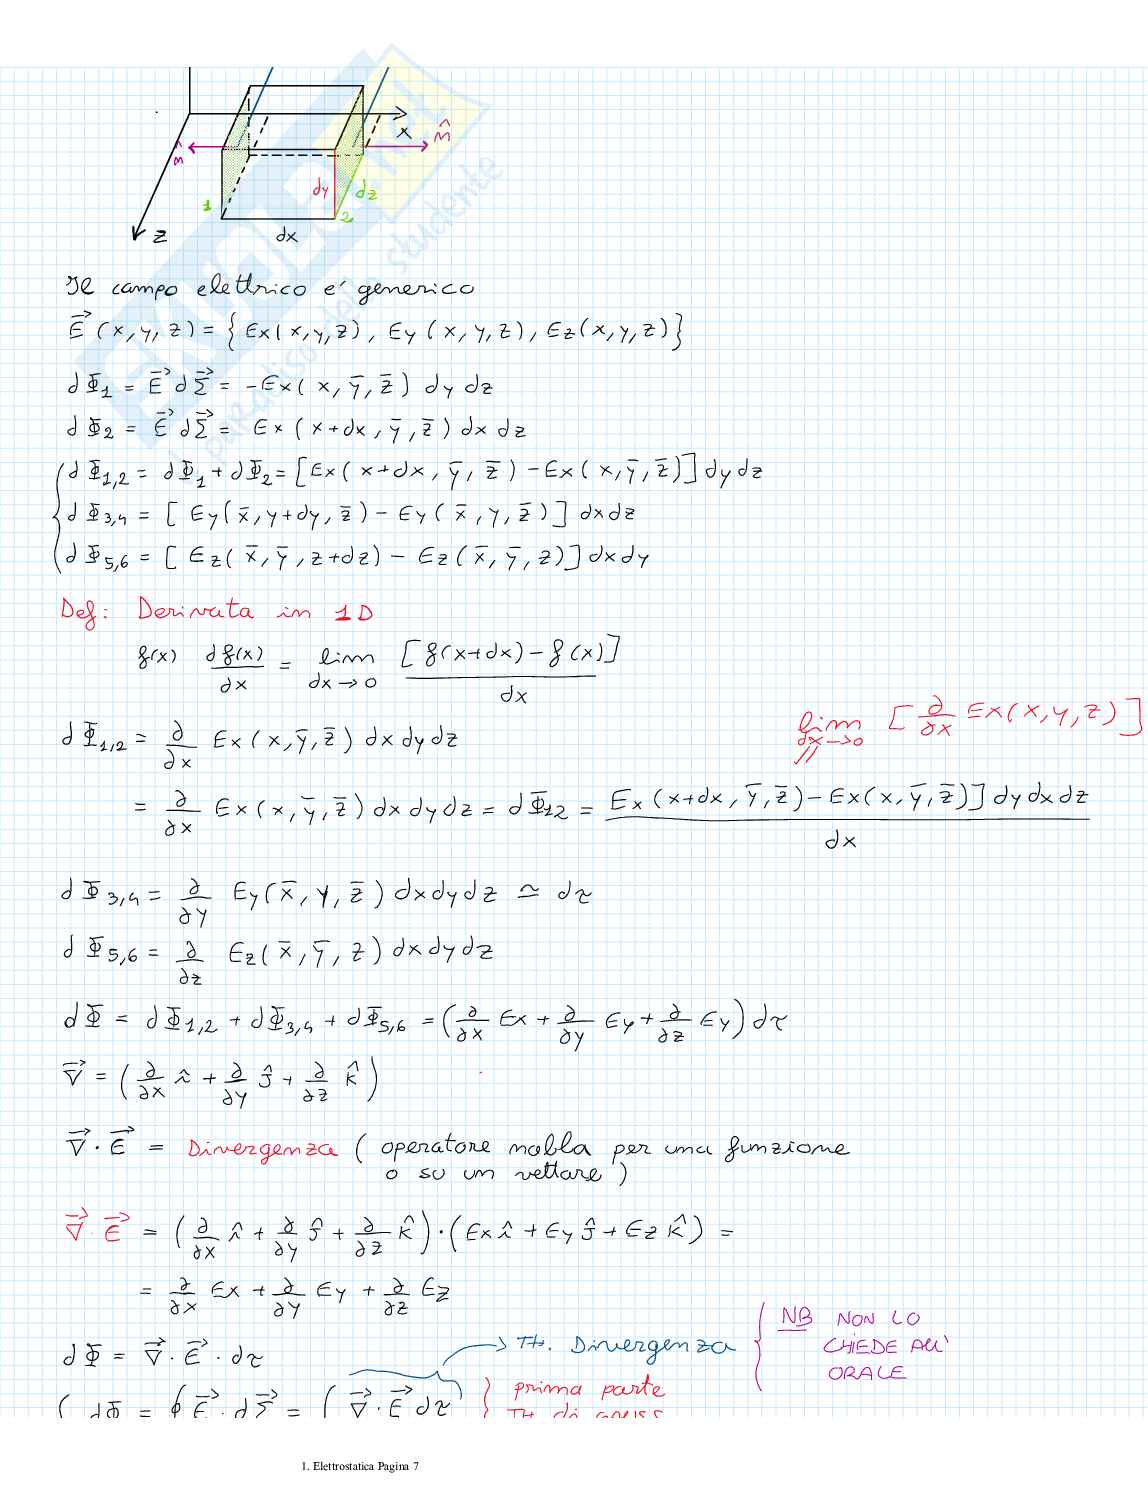 x
n̂
n̂
dy
dz
1
2
z
dx
Il campo elettrico e' generico
E⃗ (x, y, z) = { Ex(x,y,z), Ey(x,y,z), Ez(x,y,z) }
dΦ1 = E⃗ dΣ⃗ = -Ex(x, ȳ, z̄) dy dz
dΦ2 = E⃗ dΣ⃗ = Ex(x+dx, ȳ, z̄) dx dz
dΦ1,2 = dΦ1 + dΦ2 = [Ex(x+dx, ȳ, z̄) - Ex(x, ȳ, z̄)] dy dz
dΦ3,4 = [Ey(x̄, y+dy, z̄) - Ey(x̄, y, z̄)] dx dz
dΦ5,6 = [Ez(x̄, ȳ, z+dz) - Ez(x̄, ȳ, z)] dx dy
Def: Derivata in 1D
f(x) df(x)/dx = lim dx→0 [f(x+dx) - f(x)]/dx
lim dx→0 [∂/∂x Ex(x,y,z)]
dΦ1,2 = ∂/∂x Ex(x, ȳ, z̄) dx dy dz
= ∂/∂x Ex(x, ȳ, z̄) dx dy dz = dΦ12 = Ex(x+dx, ȳ, z̄) - Ex(x, ȳ, z̄)] dy dx dz / dx
dΦ3,4 = ∂/∂y Ey(x̄, y, z̄) dx dy dz ≃ dτ
dΦ5,6 = ∂/∂z Ez(x̄, ȳ, z) dx dy dz
dΦ = dΦ1,2 + dΦ3,4 + dΦ5,6 = (∂/∂x Ex + ∂/∂y Ey + ∂/∂z Ey) dτ
∇⃗ = (∂/∂x î + ∂/∂y ĵ + ∂/∂z k̂)
∇⃗ · E⃗ = Divergenza (operatore nabla per una funzione
o su un vettore)
∇⃗ · E⃗ = (∂/∂x î + ∂/∂y ĵ + ∂/∂z k̂) · (Ex î + Ey ĵ + Ez k̂) =
= ∂/∂x Ex + ∂/∂y Ey + ∂/∂z Ez
dΦ = ∇⃗ · E⃗ · dτ
→ TH. Divergenza
NB NON LO
CHIEDE ALL'
ORALE
∫ dΦ = ∮ E⃗ · dΣ⃗ = ∫ ∇⃗ · E⃗ dτ
prima parte
TH di Gauss
1. Elettrostatica Pagina 7